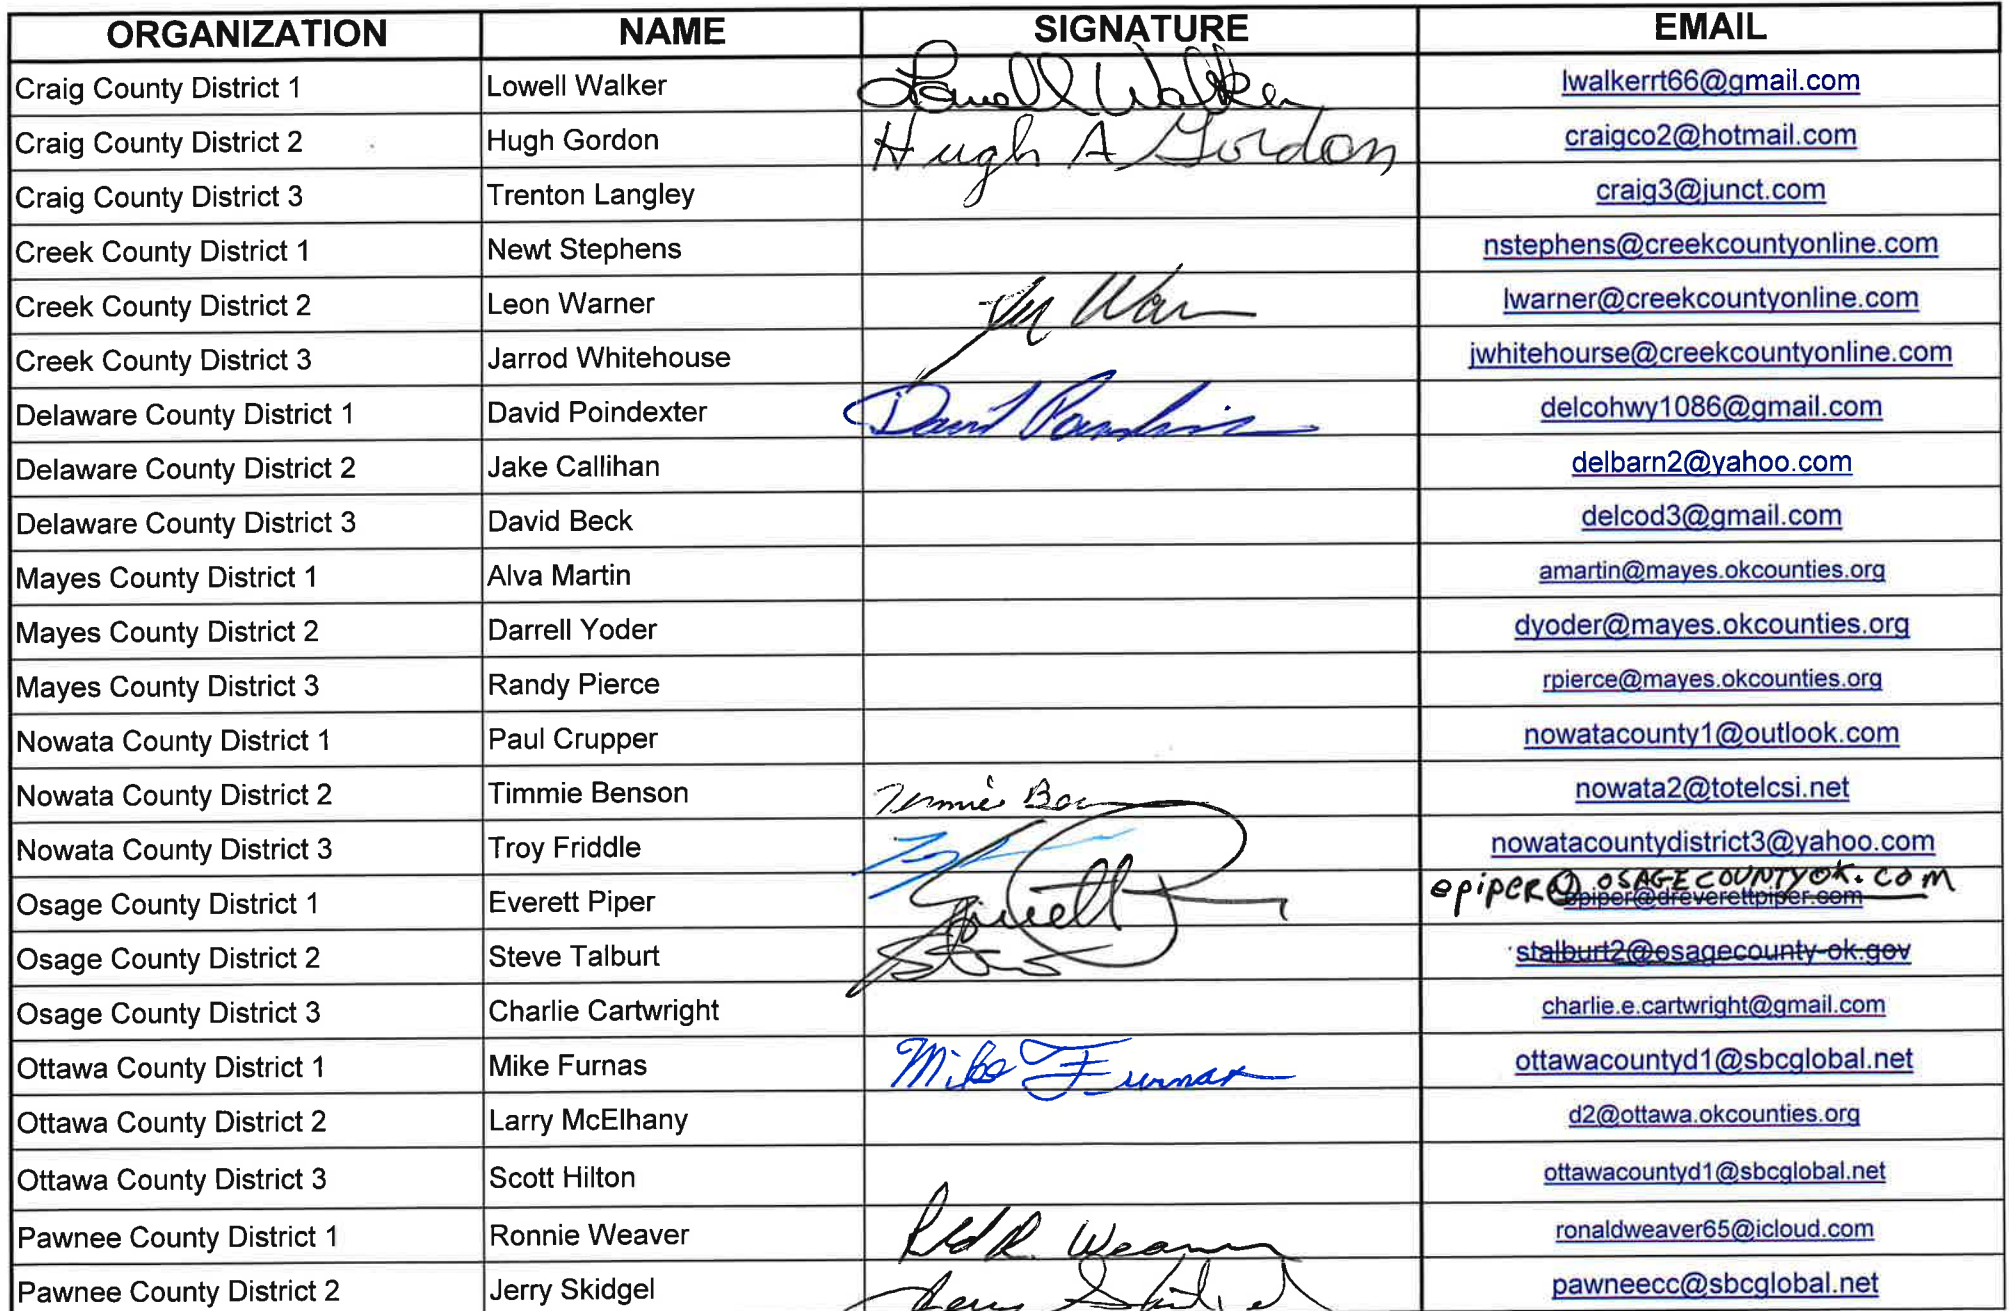 ORGANIZATION NAME SIGNATURE EMAIL
Craig County District 1 Lowell Walker Lowell Walker lwalkerrt66@gmail.com
Craig County District 2 Hugh Gordon Hugh A Gordon craigco2@hotmail.com
Craig County District 3 Trenton Langley craig3@junct.com
Creek County District 1 Newt Stephens nstephens@creekcountyonline.com
Creek County District 2 Leon Warner lwarner@creekcountyonline.com
Creek County District 3 Jarrod Whitehouse jwhitehourse@creekcountyonline.com
Delaware County District 1 David Poindexter David delcohwy1086@gmail.com
Delaware County District 2 Jake Callihan delbarn2@yahoo.com
Delaware County District 3 David Beck delcod3@gmail.com
Mayes County District 1 Alva Martin amartin@mayes.okcounties.org
Mayes County District 2 Darrell Yoder dyoder@mayes.okcounties.org
Mayes County District 3 Randy Pierce rpierce@mayes.okcounties.org
Nowata County District 1 Paul Crupper nowatacounty1@outlook.com
Nowata County District 2 Timmie Benson nowata2@totelcsi.net
Nowata County District 3 Troy Friddle nowatacountydistrict3@yahoo.com
epiper@osagecountyok.com
Osage County District 1 Everett Piper epiper@dreverettpiper.com
Osage County District 2 Steve Talburt stalburt2@osagecounty-ok.gov
Osage County District 3 Charlie Cartwright charlie.e.cartwright@gmail.com
Ottawa County District 1 Mike Furnas Mike Furnas ottawacountyd1@sbcglobal.net
Ottawa County District 2 Larry McElhany d2@ottawa.okcounties.org
Ottawa County District 3 Scott Hilton ottawacountyd1@sbcglobal.net
Pawnee County District 1 Ronnie Weaver R. Weaver ronaldweaver65@icloud.com
Pawnee County District 2 Jerry Skidgel pawneecc@sbcglobal.net